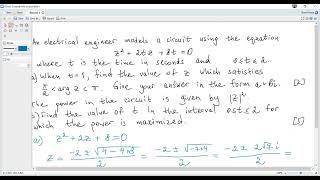 An electrical engineer models a circuit using the equation
z² + 2tz + 8t = 0
where t is the time in seconds and 0≤t≤2
a) When t=1, find the value of z which satisfies
π/2 < arg z < π. Give your answer in the form a+bi. [2]
The power in the circuit is given by |z|²
b) Find the value of t in the interval 0≤t≤2 for
which the power is maximized. [5]
a) z² + 2z + 8 = 0
z = (-2 ± √(4-4×8))/2 = (-2 ± √(-7×4))/2 = (-2 ± 2√7 i)/2 =